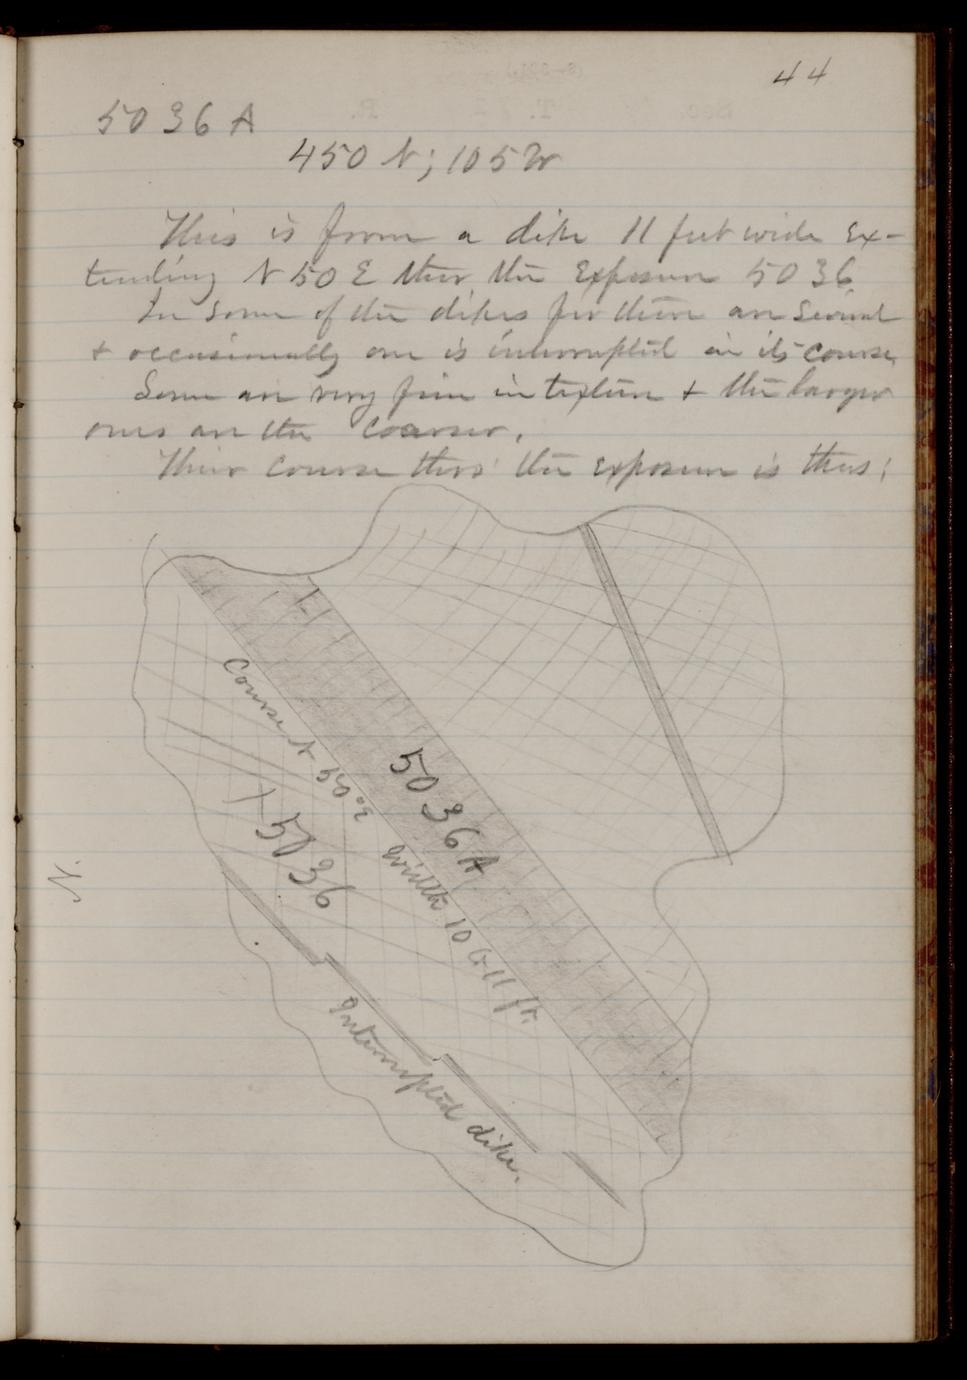 44
5036 A
450 N; 105 W
This is from a dike 11 feet wide Ex-
tending N 50 E thro. the Exposure 5036.
In some of the dikes for there are several
+ occasionally one is interrupted in its course
Some are very fine in texture + the larger
ones are the coarser.
Their course thro' the exposure is thus:
Course N 50° E
5036 A
X 5036
Width 10 to 11 ft.
N.
Interrupted dike.